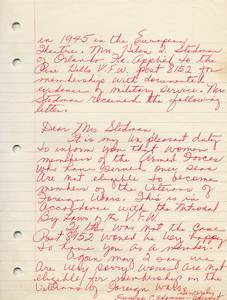 in 1945 in the European
Theatre. Mrs. Helen L. Stedman
of Orlando Fla. Applied to the
Pine Hills V.F.W. Post 8152 for
membership with documented
evidence of military service. Mrs
Stedman received the following
letter.
Dear Mrs. Stedman,
It is my un pleasant duty
to inform you that women
members of the Armed Forces
who have served over seas
are not eligible to become
members of the Veterans of
Foreign Wars. This is in
Accordance with the National
By Laws of the V.F.W.
If this was not the case
Post 8152 would be very happy
to have you as a member.
Again may I say we
are very sorry women are not
eligible for membership in the
Veterans of Foreign Wars.
Sincerely,